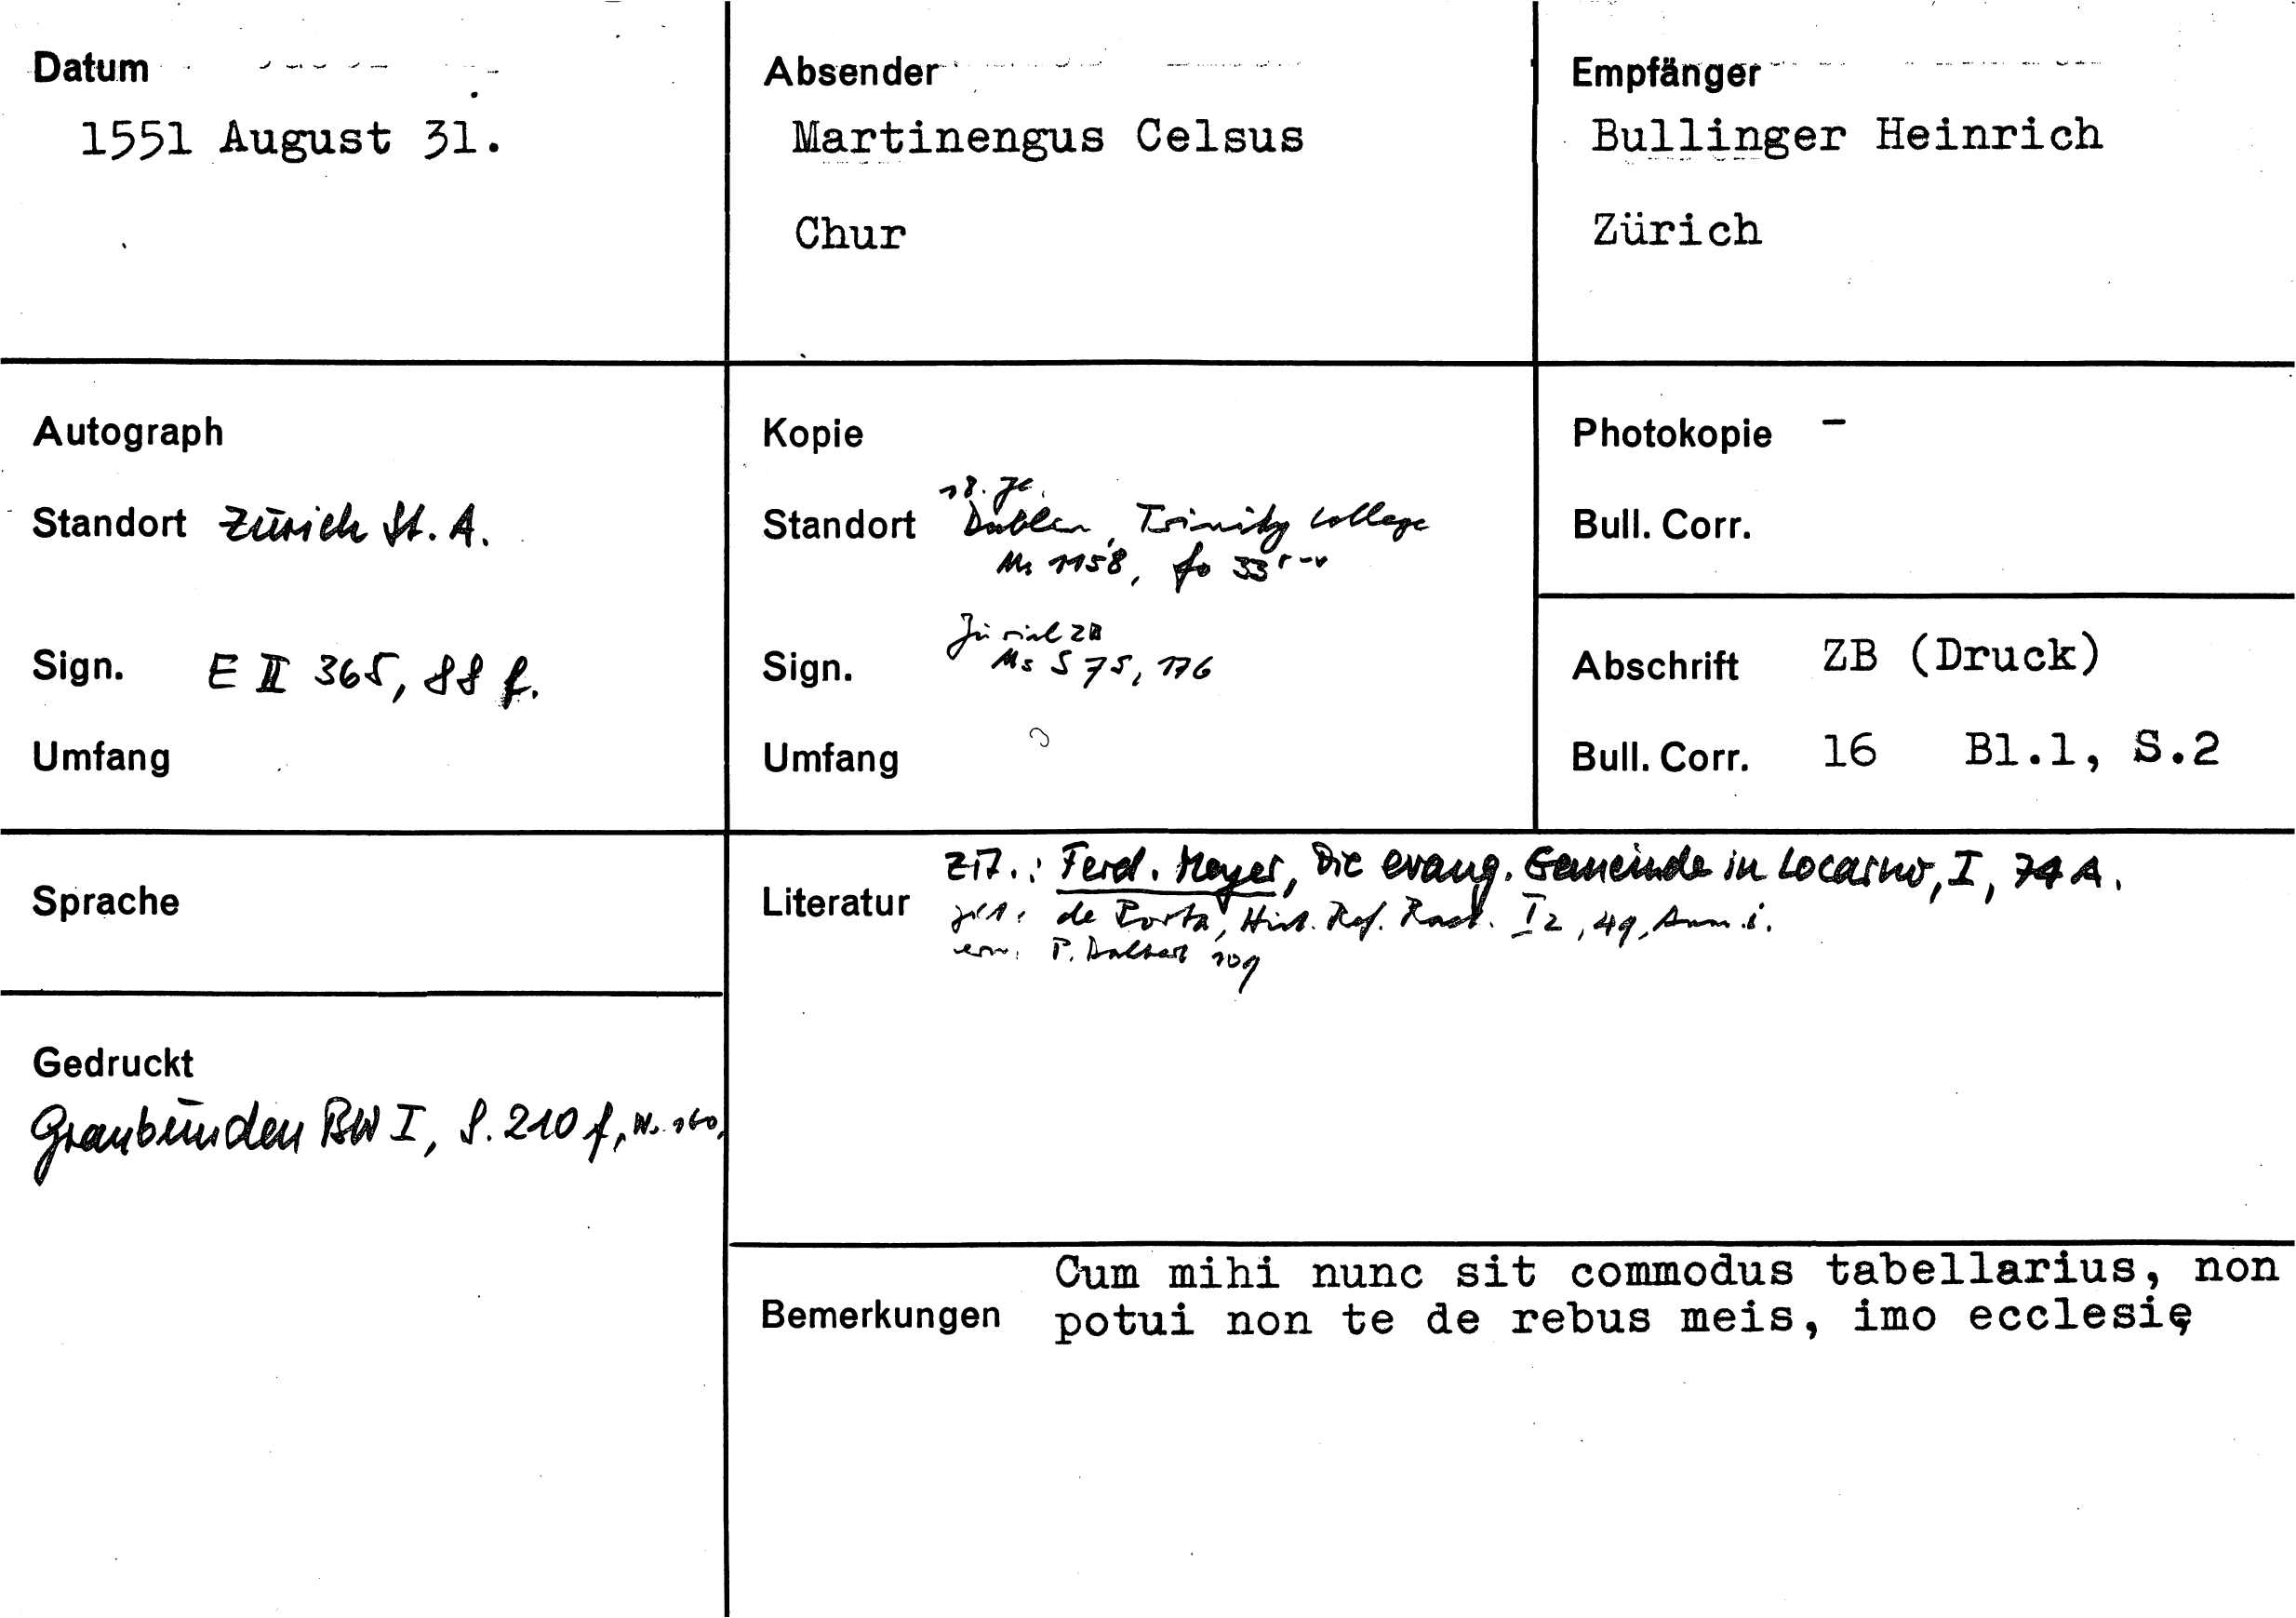 Datum
1551 August 31.
Absender
Martinengus Celsus
Chur
Empfänger
Bullinger Heinrich
Zürich
Autograph
Standort Zürich St. A.
Sign. E II 365, 88 f.
Umfang
Kopie
18. Jh.
Standort Dublin, Trinity College
Ms 1158, fo 33 r-v
Zürich ZB
Sign. Ms S 75, 176
Umfang
Photokopie -
Bull. Corr.
Abschrift ZB (Druck)
Bull. Corr. 16 Bl.1, S.2
Sprache
Gedruckt
Graubünden BW I, S. 210 f, Nr. 160,
Literatur zit.: Ferd. Meyer, Die evang. Gemeinde in Locarno, I, 74 A.
zit. de Porta, Hist. Ref. Raet. I 2, 49, Anm. i.
erw. P. Dalbert 109
Bemerkungen Cum mihi nunc sit commodus tabellarius, non
potui non te de rebus meis, imo ecclesię